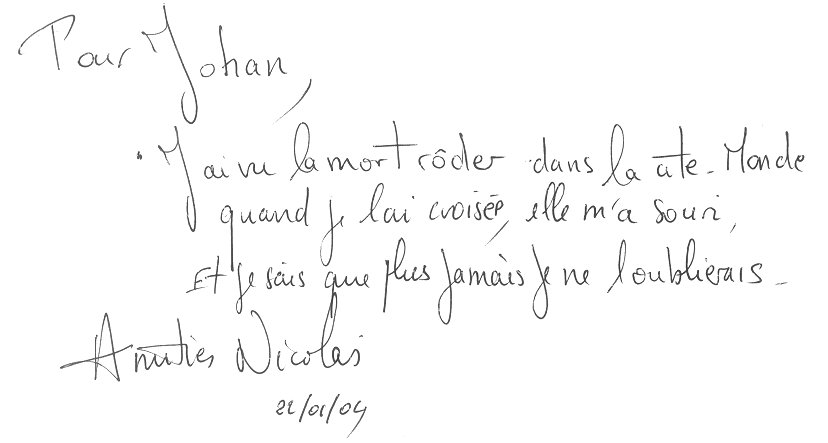 Pour Johan,
J'ai vu la mort rôder dans la cité-Monde
quand je l'ai croisée, elle m'a souri,
Et je sais que plus jamais je ne l'oublierais.
Amitiés Nicolas
22/01/04